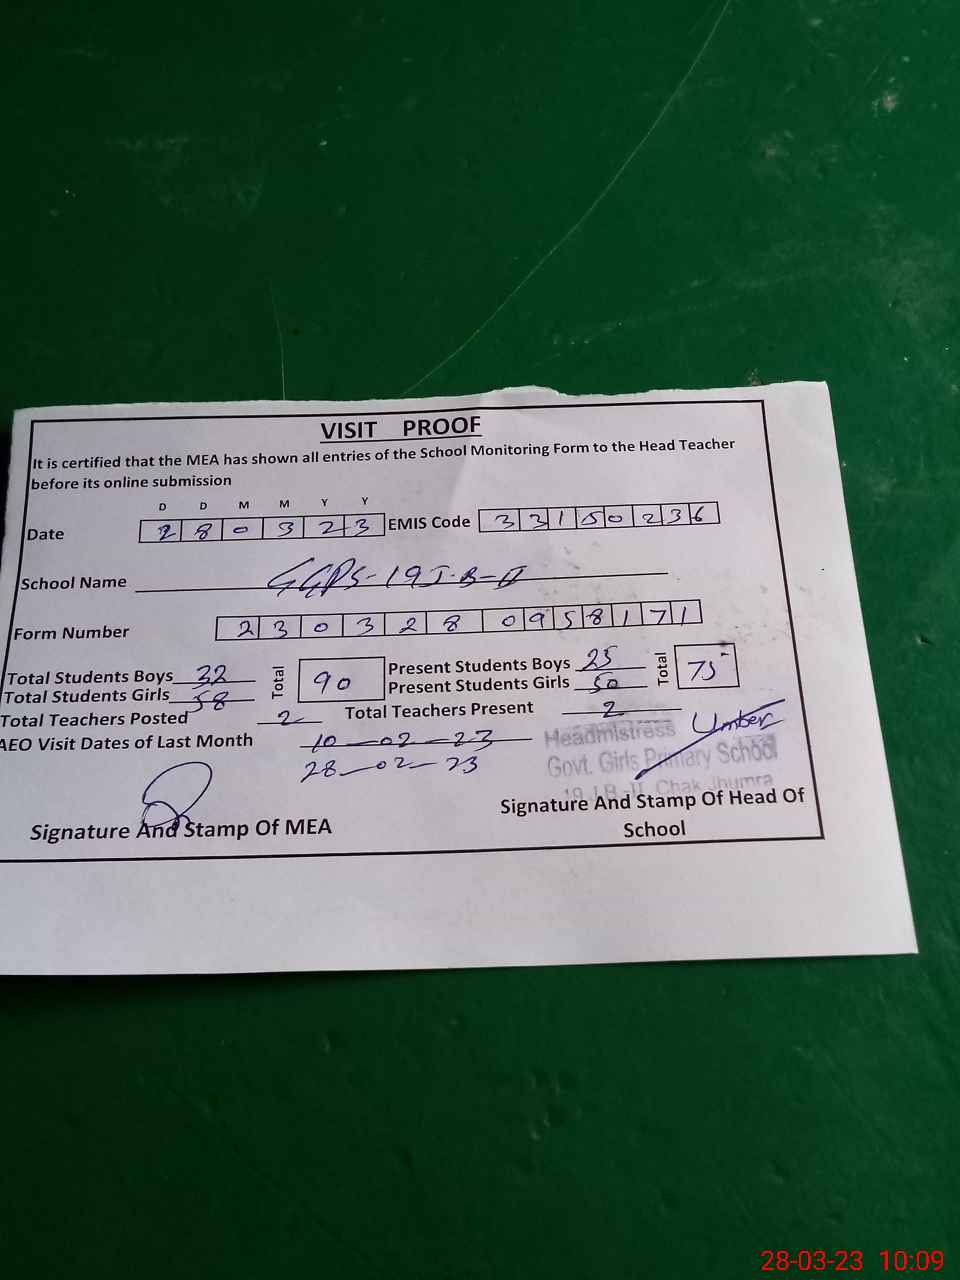 VISIT PROOF
It is certified that the MEA has shown all entries of the School Monitoring Form to the Head Teacher
before its online submission
D D M M Y Y
Date 280323 EMIS Code 33150236
School Name GGPS-19J-B-II
Form Number 2303280958171
Total Students Boys 32 Total 90 Present Students Boys 25 Total 75
Total Students Girls 58 Present Students Girls 50
Total Teachers Posted 2 Total Teachers Present 2
AEO Visit Dates of Last Month 10-02-23
28-02-23
Headmistress Umber
Govt. Girls Primary School
19 J.B-II Chak Jhumra
Signature And Stamp Of MEA
Signature And Stamp Of Head Of
School
28-03-23 10:09